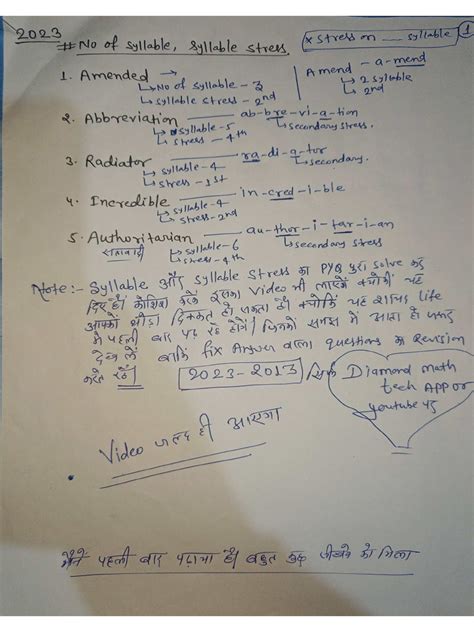 2023
# No of syllable, Syllable stress.
x stress on __ syllable
1
1. Amended →
↳ No of syllable - 3
↳ syllable stress - 2nd
Amend - a-mend
↳ 2 syllable
↳ 2nd
2. Abbreviation ab-bre-vi-a-tion
↳ syllable - 5
↳ stress - 4th
↳ secondary stress.
3. Radiator ra-di-a-tor
↳ syllable - 4
↳ stress - 1st
↳ secondary.
4. Incredible in-cred-i-ble
↳ syllable - 4
↳ stress - 2nd
5. Authoritarian au-thor-i-tar-i-an
सत्तावादी
↳ syllable - 6
↳ stress - 4th
↳ secondary stress.
Note:- Syllable और Syllable Stress का PYQ पूरा solve कर
दिए हैं। कोशिश करेंगे इसका Video भी लाएंगे क्योंकि यह
आपको थोड़ा दिक्कत हो सकता है। क्योंकि यह शायद life
में पहली बार पढ़ रहे होंगे। जिनको समझ में आता हो जरूर
देख लें बाकि fix Answer वाला questions का Revision
करते रहें। 2023-2013 सिर्फ Diamond math
tech APP or
youtube पर
Video जल्द ही आएगा
मैंने पहली बार पढ़ाया है। बहुत कुछ सीखने को मिला